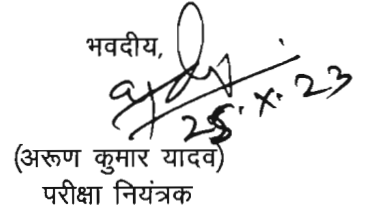 भवदीय,
25.X.23
(अरूण कुमार यादव)
परीक्षा नियंत्रक